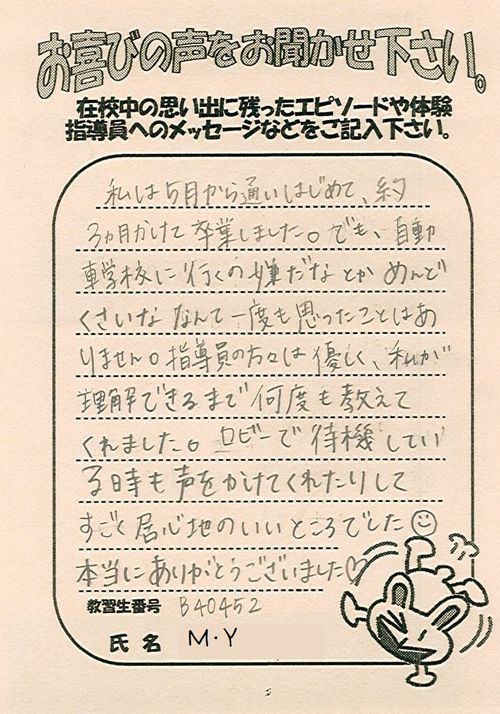 お喜びの声をお聞かせ下さい。
在校中の思い出に残ったエピソードや体験
指導員へのメッセージなどをご記入下さい。
私は5月から通いはじめて、約
3ヵ月かけて卒業しました。でも、自動
車学校に行くの嫌だなとかめんど
くさいななんて一度も思ったことはあ
りません。指導員の方々は優しく、私が
理解できるまで何度も教えて
くれました。ロビーで待機してい
る時も声をかけてくれたりして
すごく居心地のいいところでした☺
本当にありがとうございました♡
教習生番号 B40452
氏名 M・Y